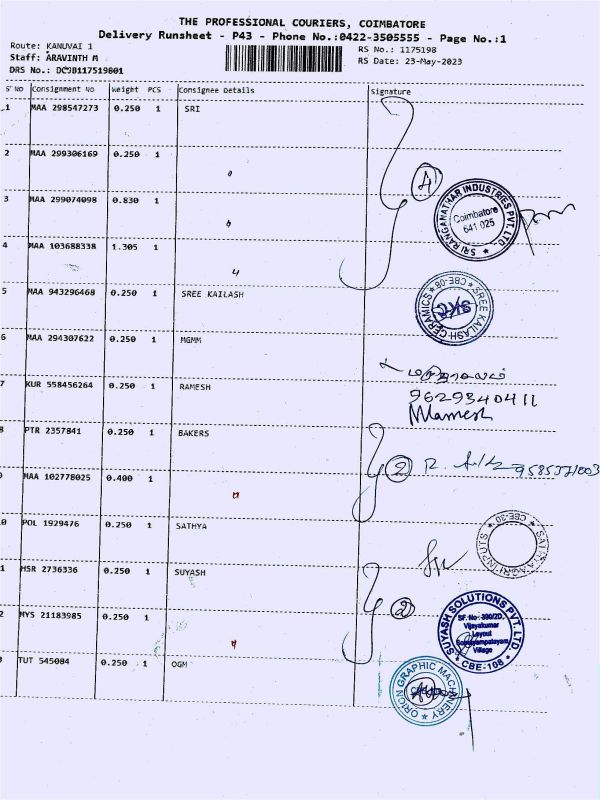 THE PROFESSIONAL COURIERS, COIMBATORE
Delivery Runsheet - P43 - Phone No.:0422-3505555 - Page No.:1
Route: KANUVAI 1
RS No.: 1175198
Staff: ARAVINTH M
RS Date: 23-May-2023
DRS No.: DC9B117519801
S NO Consignment NO Weight PCS Consignee Details Signature
1 MAA 298547273 0.250 1 SRI
2 MAA 299306169 0.250 1
4
3 MAA 299074098 0.830 1
SRI RANGANATHAR INDUSTRIES PVT. LTD
Coimbatore
641 025
4 MAA 103688338 1.305 1
5 MAA 943296468 0.250 1 SREE KAILASH
SREE KAILASH CERAMICS CBE-08
6 MAA 294307622 0.250 1 MGMM
7 KUR 558456264 0.250 1 RAMESH
9629340411
8 PTR 2357841 0.250 1 BAKERS
2
MAA 102778025 0.400 1
0 POL 1929476 0.250 1 SATHYA
AGRI INPUTS CBE-30
1 HSR 2736336 0.250 1 SUYASH
2
SUYASH SOLUTIONS PVT. LTD
SF. No: 390/2D,
Vijayakumar
Layout
Village
CBE-108
2 MYS 21183985 0.250 1
TUT 545084 0.250 1 OGM
ORION GRAPHIC MACHINERY